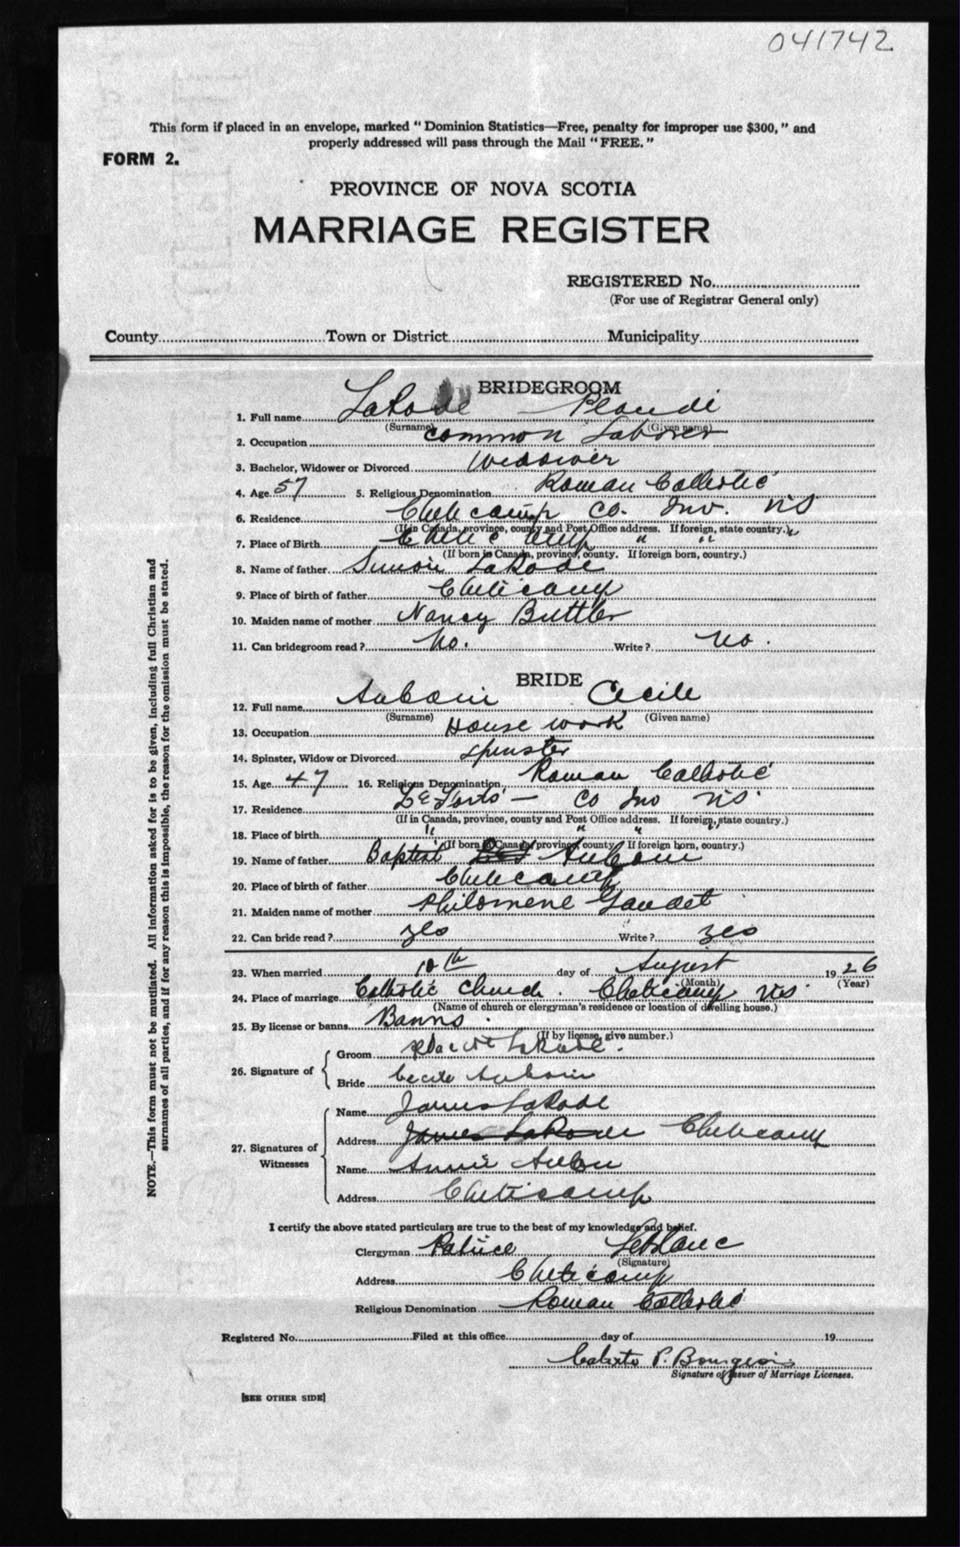 041742
This form if placed in an envelope, marked "Dominion Statistics—Free, penalty for improper use $300," and
properly addressed will pass through the Mail "FREE."
FORM 2.
PROVINCE OF NOVA SCOTIA
MARRIAGE REGISTER
REGISTERED No.
(For use of Registrar General only)
County Town or District Municipality
BRIDEGROOM
1. Full name LaRode
(Surname) (Given name)
2. Occupation common Laborer
3. Bachelor, Widower or Divorced Widower
4. Age 57 5. Religious Denomination Roman Catholic
6. Residence Cheticamp Co. Inv. NS
(If in Canada, province, county and Post Office address. If foreign, state country.)
7. Place of Birth Cheticamp " "
(If born in Canada, province, county. If foreign born, country.)
8. Name of father Simon LaRode
9. Place of birth of father Cheticamp
10. Maiden name of mother Nancy Buttler
11. Can bridegroom read? No. Write? No.
BRIDE
12. Full name Auboin Cecile
(Surname) (Given name)
13. Occupation House work
14. Spinster, Widow or Divorced spinster
15. Age 47 16. Religious Denomination Roman Catholic
17. Residence Co Inv NS.
(If in Canada, province, county and Post Office address. If foreign, state country.)
18. Place of birth " " " "
(If born in Canada, province, county. If foreign born, country.)
19. Name of father Baptist Auboin
20. Place of birth of father Cheticamp
21. Maiden name of mother Philomene Gaudet
22. Can bride read? yes Write? yes
23. When married 10th day of August 1926
(Month) (Year)
24. Place of marriage Catholic Church. Cheticamp NS.
(Name of church or clergyman's residence or location of dwelling house.)
25. By license or banns Banns.
(If by license, give number.)
26. Signature of
Groom LaRode.
Bride Cecile Auboin
27. Signatures of Witnesses
Name James LaRode
Address James LaRode Cheticamp
Name Annie
Address Cheticamp
I certify the above stated particulars are true to the best of my knowledge and belief.
Clergyman Patrice LeBlanc
(Signature)
Address Cheticamp
Religious Denomination Roman Catholic
Registered No. Filed at this office day of 19
P. Bourgeois
Signature of Issuer of Marriage Licenses.
[SEE OTHER SIDE]
NOTE.—This form must not be mutilated. All information asked for is to be given, including full Christian and
surnames of all parties, and if for any reason this is impossible, the reason for the omission must be stated.